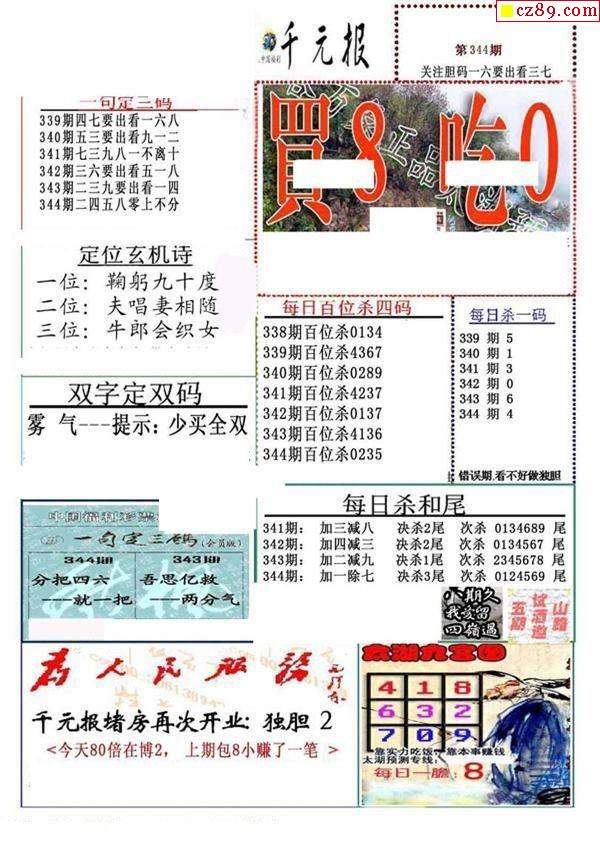 cz89.com
千元报
第344期
关注胆码一六要出看三七
一句定三码
339期四七要出看一六八
340期五三要出看九一二
341期七三九八一不离十
342期三六要出看五八一
343期二三九要出看一四
344期二四五八零上不分
買8 吃0
正品
定位玄机诗
一位：鞠躬九十度
二位：夫唱妻相随
三位：牛郎会织女
每日百位杀四码
338期百位杀0134
339期百位杀4367
340期百位杀0289
341期百位杀4237
342期百位杀0137
343期百位杀4136
344期百位杀0235
每日杀一码
339 期 5
340 期 1
341 期 3
342 期 0
343 期 6
344 期 4
错误期,看不好做独胆
双字定双码
雾 气---提示：少买全双
每日杀和尾
341期： 加三减八 决杀2尾 次杀 0134689 尾
342期： 加四减三 决杀2尾 次杀 0134567 尾
343期： 加二减九 决杀1尾 次杀 2345678 尾
344期： 加一除七 决杀3尾 次杀 0124569 尾
一句定三码(会员版)
344期 343期
分把四六 吾思亿救
---就一把 ---两分气
八期久
我爱留
四嶺過
山路
试酒邀
五期
为人民服务
千元报堵房再次开业：独胆 2
<今天80倍在博2， 上期包8小赚了一笔 >
太湖九宫图
4 1 8
6 3 2
7 0 9
靠实力吃饭，靠本事赚钱
太湖预测专线：
每日一胆：8